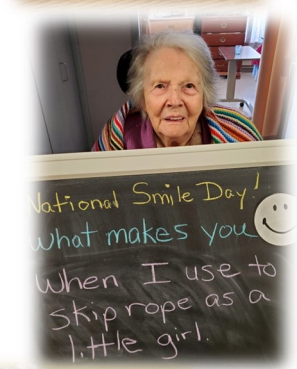 National Smile Day!
what makes you
When I use to
skip rope as a
little girl.